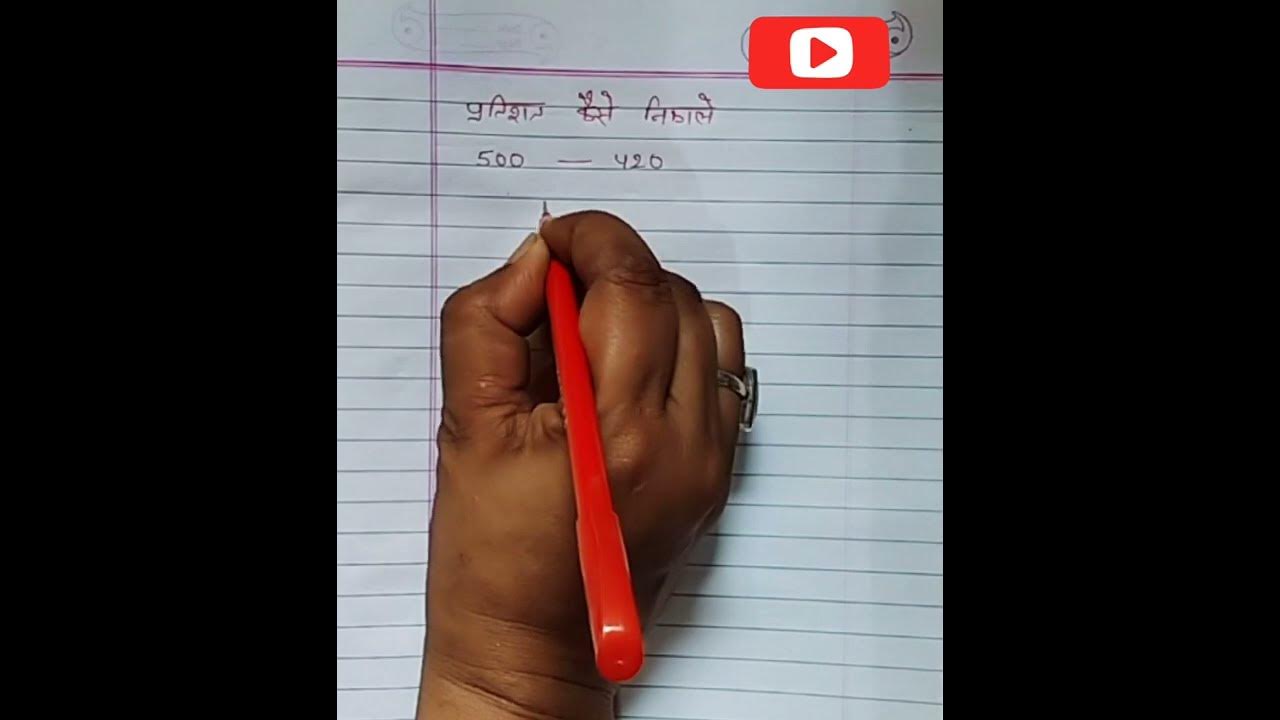 प्रतिशत कैसे निकाले
500 — 420